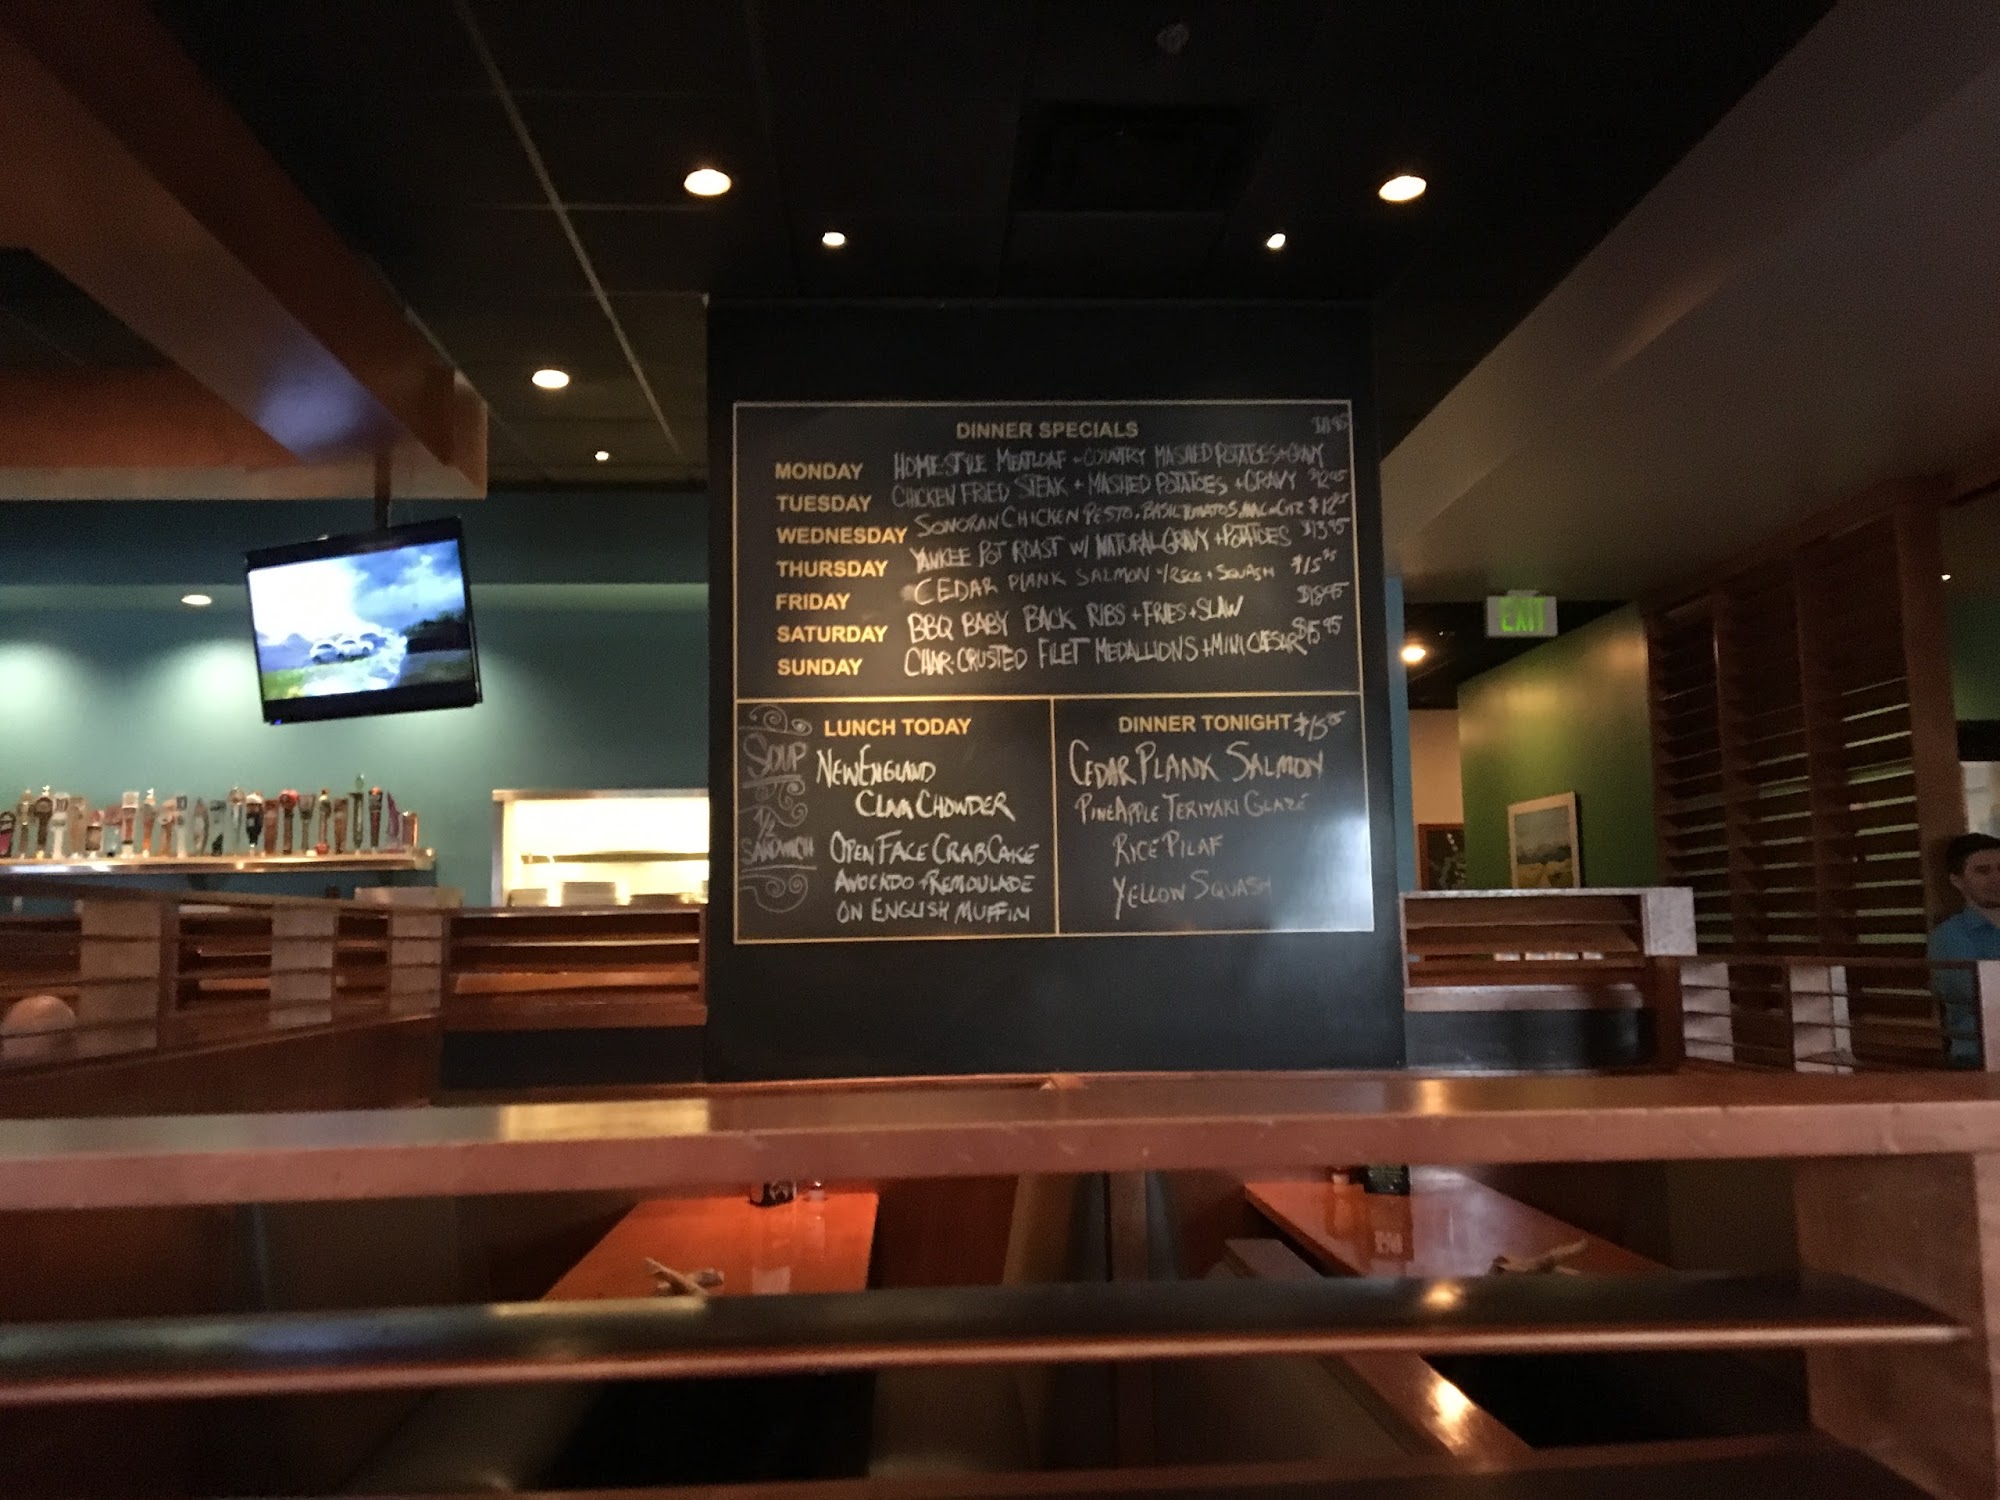 DINNER SPECIALS
MONDAY HOMESTYLE MEATLOAF + COUNTRY MASHED POTATOES + GRAVY
TUESDAY CHICKEN FRIED STEAK + MASHED POTATOES + GRAVY $12.95
WEDNESDAY SONORAN CHICKEN PESTO, BASIL
THURSDAY YANKEE POT ROAST W/ NATURAL GRAVY + POTATOES $13.95
FRIDAY CEDAR PLANK SALMON W/ RICE + SQUASH $15.95
SATURDAY BBQ BABY BACK RIBS + FRIES + SLAW $18.95
SUNDAY CHAR-CRUSTED FILET MEDALLIONS + MINI CAESAR $15.95
LUNCH TODAY
SOUP
NEW ENGLAND
CLAM CHOWDER
1/2
SANDWICH
OPEN FACE CRAB CAKE
AVOCADO + REMOULADE
ON ENGLISH MUFFIN
DINNER TONIGHT $15.95
CEDAR PLANK SALMON
PINEAPPLE TERIYAKI GLAZE
RICE PILAF
YELLOW SQUASH
EXIT